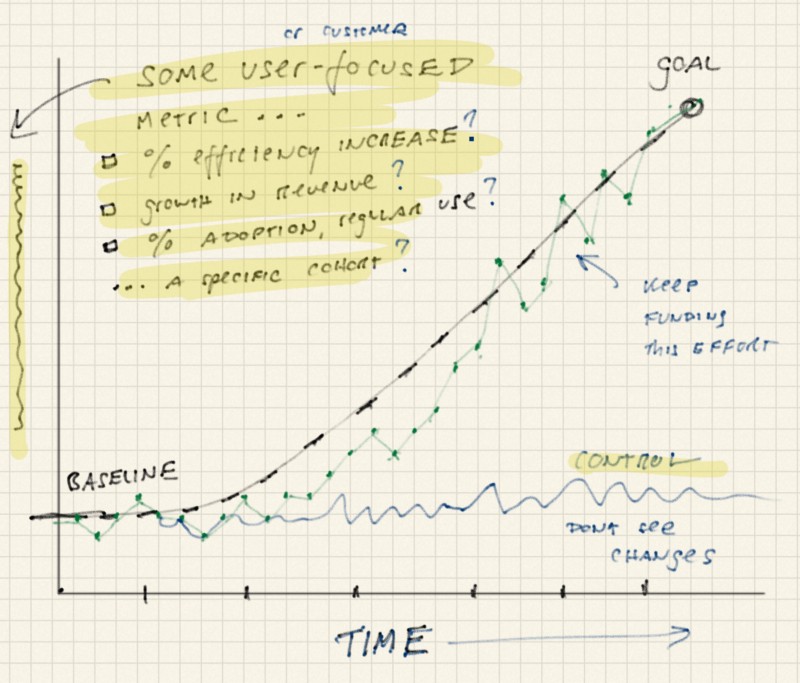 or customer
SOME USER-FOCUSED
METRIC ...
% efficiency INCREASE?
growth IN Revenue?
% ADOPTION, regular use?
... A specific COHORT?
GOAL
Keep
FUNDING
THIS EFFORT
BASELINE
CONTROL
DONT see
CHANGES
TIME